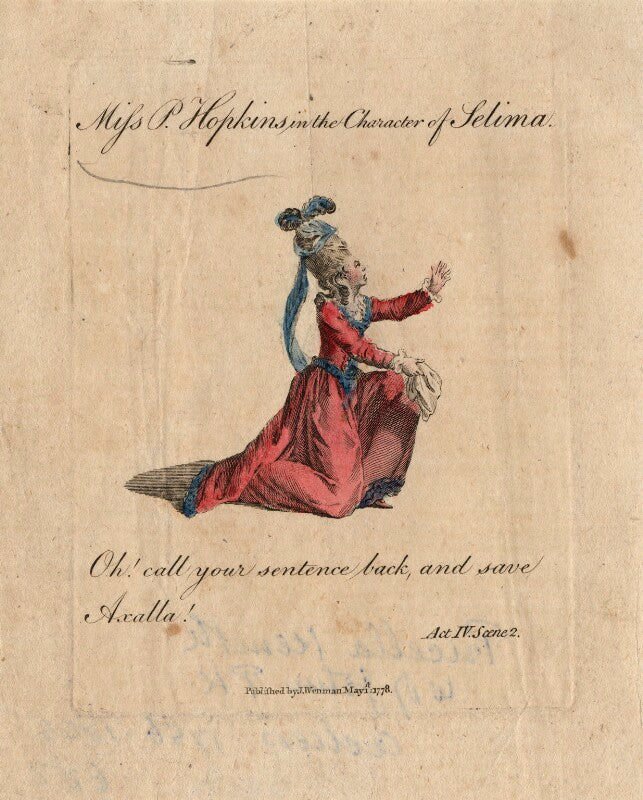 Miſs P. Hopkins, in the Character of Selima.
Oh! call your sentence back, and save
Axalla!
Act IV. Scene 2.
Published by J. Wenman May 1st 1778.